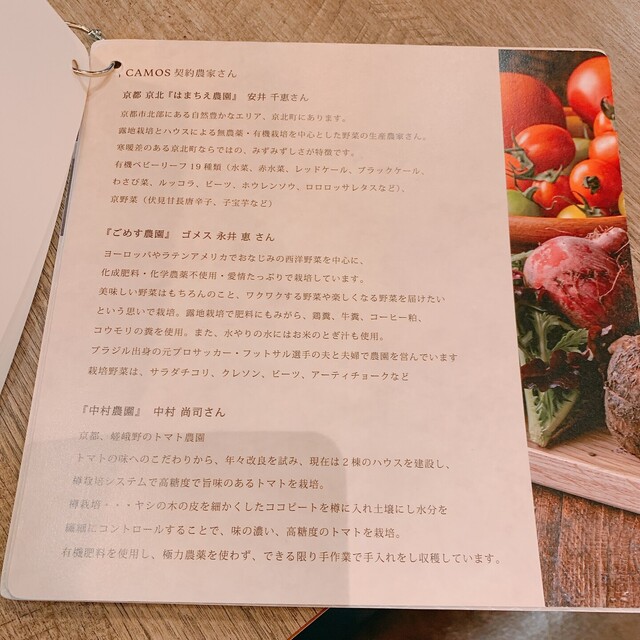 , CAMOS 契約農家さん
京都 京北『はまちえ農園』 安井 千恵さん
京都市北部にある自然豊かなエリア、京北町にあります。
露地栽培とハウスによる無農薬・有機栽培を中心とした野菜の生産農家さん。
寒暖差のある京北町ならではの、みずみずしさが特徴です。
有機ベビーリーフ19種類（水菜、赤水菜、レッドケール、ブラックケール、
わさび菜、ルッコラ、ビーツ、ホウレンソウ、ロロロッサレタスなど）、
京野菜（伏見甘長唐辛子、子宝芋など）
『ごめす農園』 ゴメス 永井 恵 さん
ヨーロッパやラテンアメリカでおなじみの西洋野菜を中心に、
化成肥料・化学農薬不使用・愛情たっぷりで栽培しています。
美味しい野菜はもちろんのこと、ワクワクする野菜や楽しくなる野菜を届けたい
という思いで栽培。露地栽培で肥料にもみがら、鶏糞、牛糞、コーヒー粕、
コウモリの糞を使用。また、水やりの水にはお米のとぎ汁も使用。
ブラジル出身の元プロサッカー・フットサル選手の夫と夫婦で農園を営んでいます
栽培野菜は、サラダチコリ、クレソン、ビーツ、アーティチョークなど
『中村農園』 中村 尚司さん
京都、嵯峨野のトマト農園
トマトの味へのこだわりから、年々改良を試み、現在は2棟のハウスを建設し、
樽栽培システムで高糖度で旨味のあるトマトを栽培。
樽栽培・・・ヤシの木の皮を細かくしたココピートを樽に入れ土壌にし水分を
繊細にコントロールすることで、味の濃い、高糖度のトマトを栽培。
有機肥料を使用し、極力農薬を使わず、できる限り手作業で手入れをし収穫しています。